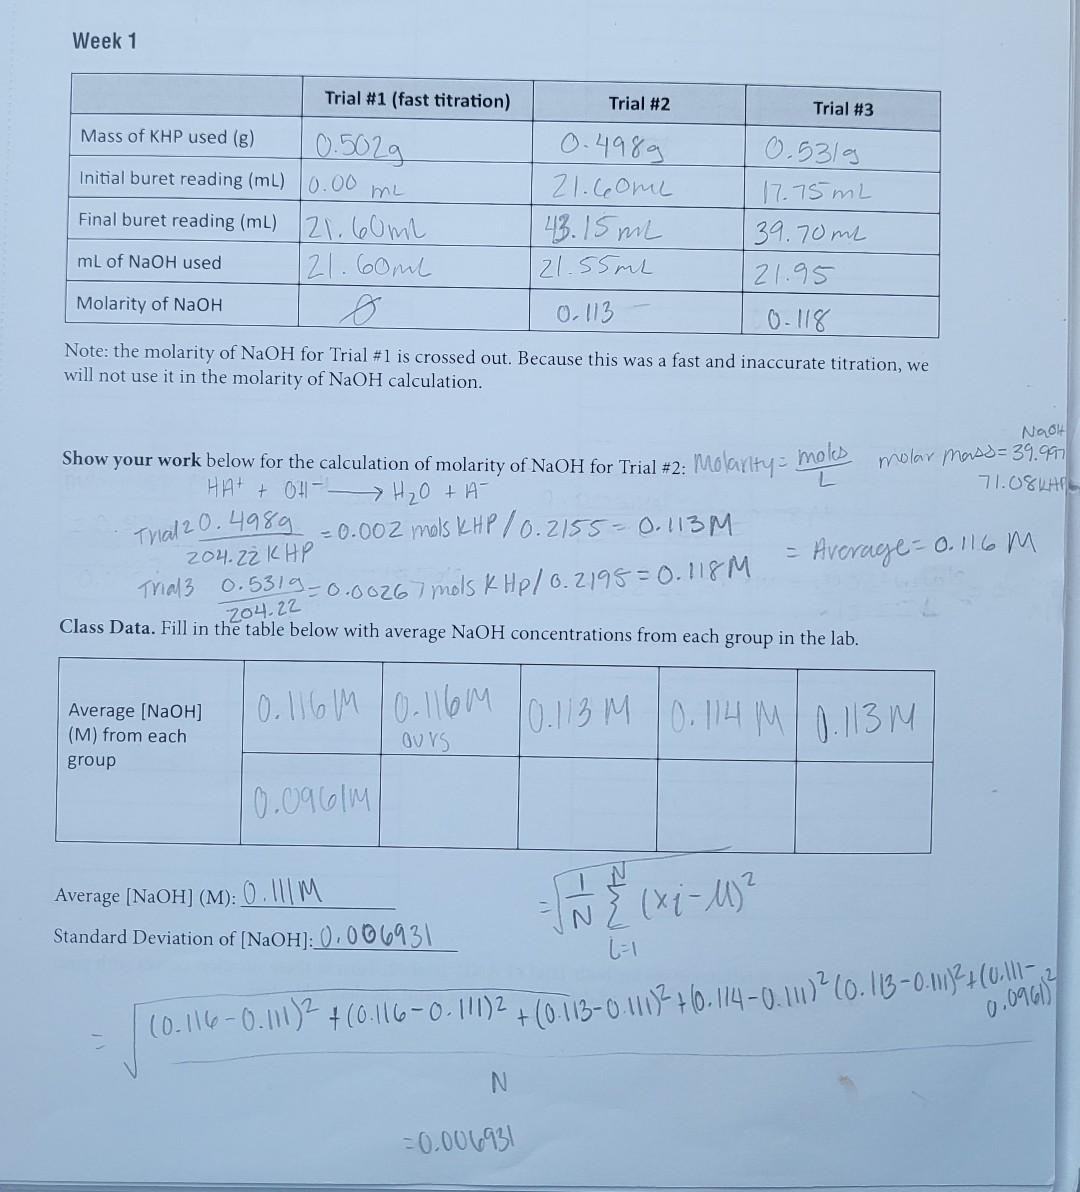 Week 1
Trial #1 (fast titration) Trial #2 Trial #3
Mass of KHP used (g) 0.502g 0.498g 0.531g
Initial buret reading (mL) 0.00 mL 21.60mL 17.75mL
Final buret reading (mL) 21.60mL 43.15mL 39.70mL
mL of NaOH used 21.60mL 21.55mL 21.95
Molarity of NaOH Ø 0.113 0.118
Note: the molarity of NaOH for Trial #1 is crossed out. Because this was a fast and inaccurate titration, we
will not use it in the molarity of NaOH calculation.
NaOH
Show your work below for the calculation of molarity of NaOH for Trial #2: Molarity = moles/L molar mass = 39.997
71.08KHP
HA+ + OH- → H2O + A-
Trial 2 0.498g/204.22 KHP = 0.002 mols KHP / 0.2155 = 0.113M
= Average = 0.116 M
Trial 3 0.531g/204.22 = 0.00267 mols KHp / 0.2195 = 0.118M
Class Data. Fill in the table below with average NaOH concentrations from each group in the lab.
Average [NaOH]
(M) from each
group
0.116M 0.116M 0.113 M 0.114 M 0.113M
ours
0.0961M
Average [NaOH] (M): 0.111M
Standard Deviation of [NaOH]: 0.006931
= √ 1/N N Σ i=1 (xi-M)²
= √ (0.116-0.111)² + (0.116-0.111)2 + (0.113-0.111)² + (0.114-0.111)² (0.113-0.111)² + (0.111-
0.0961)²
N
= 0.006931